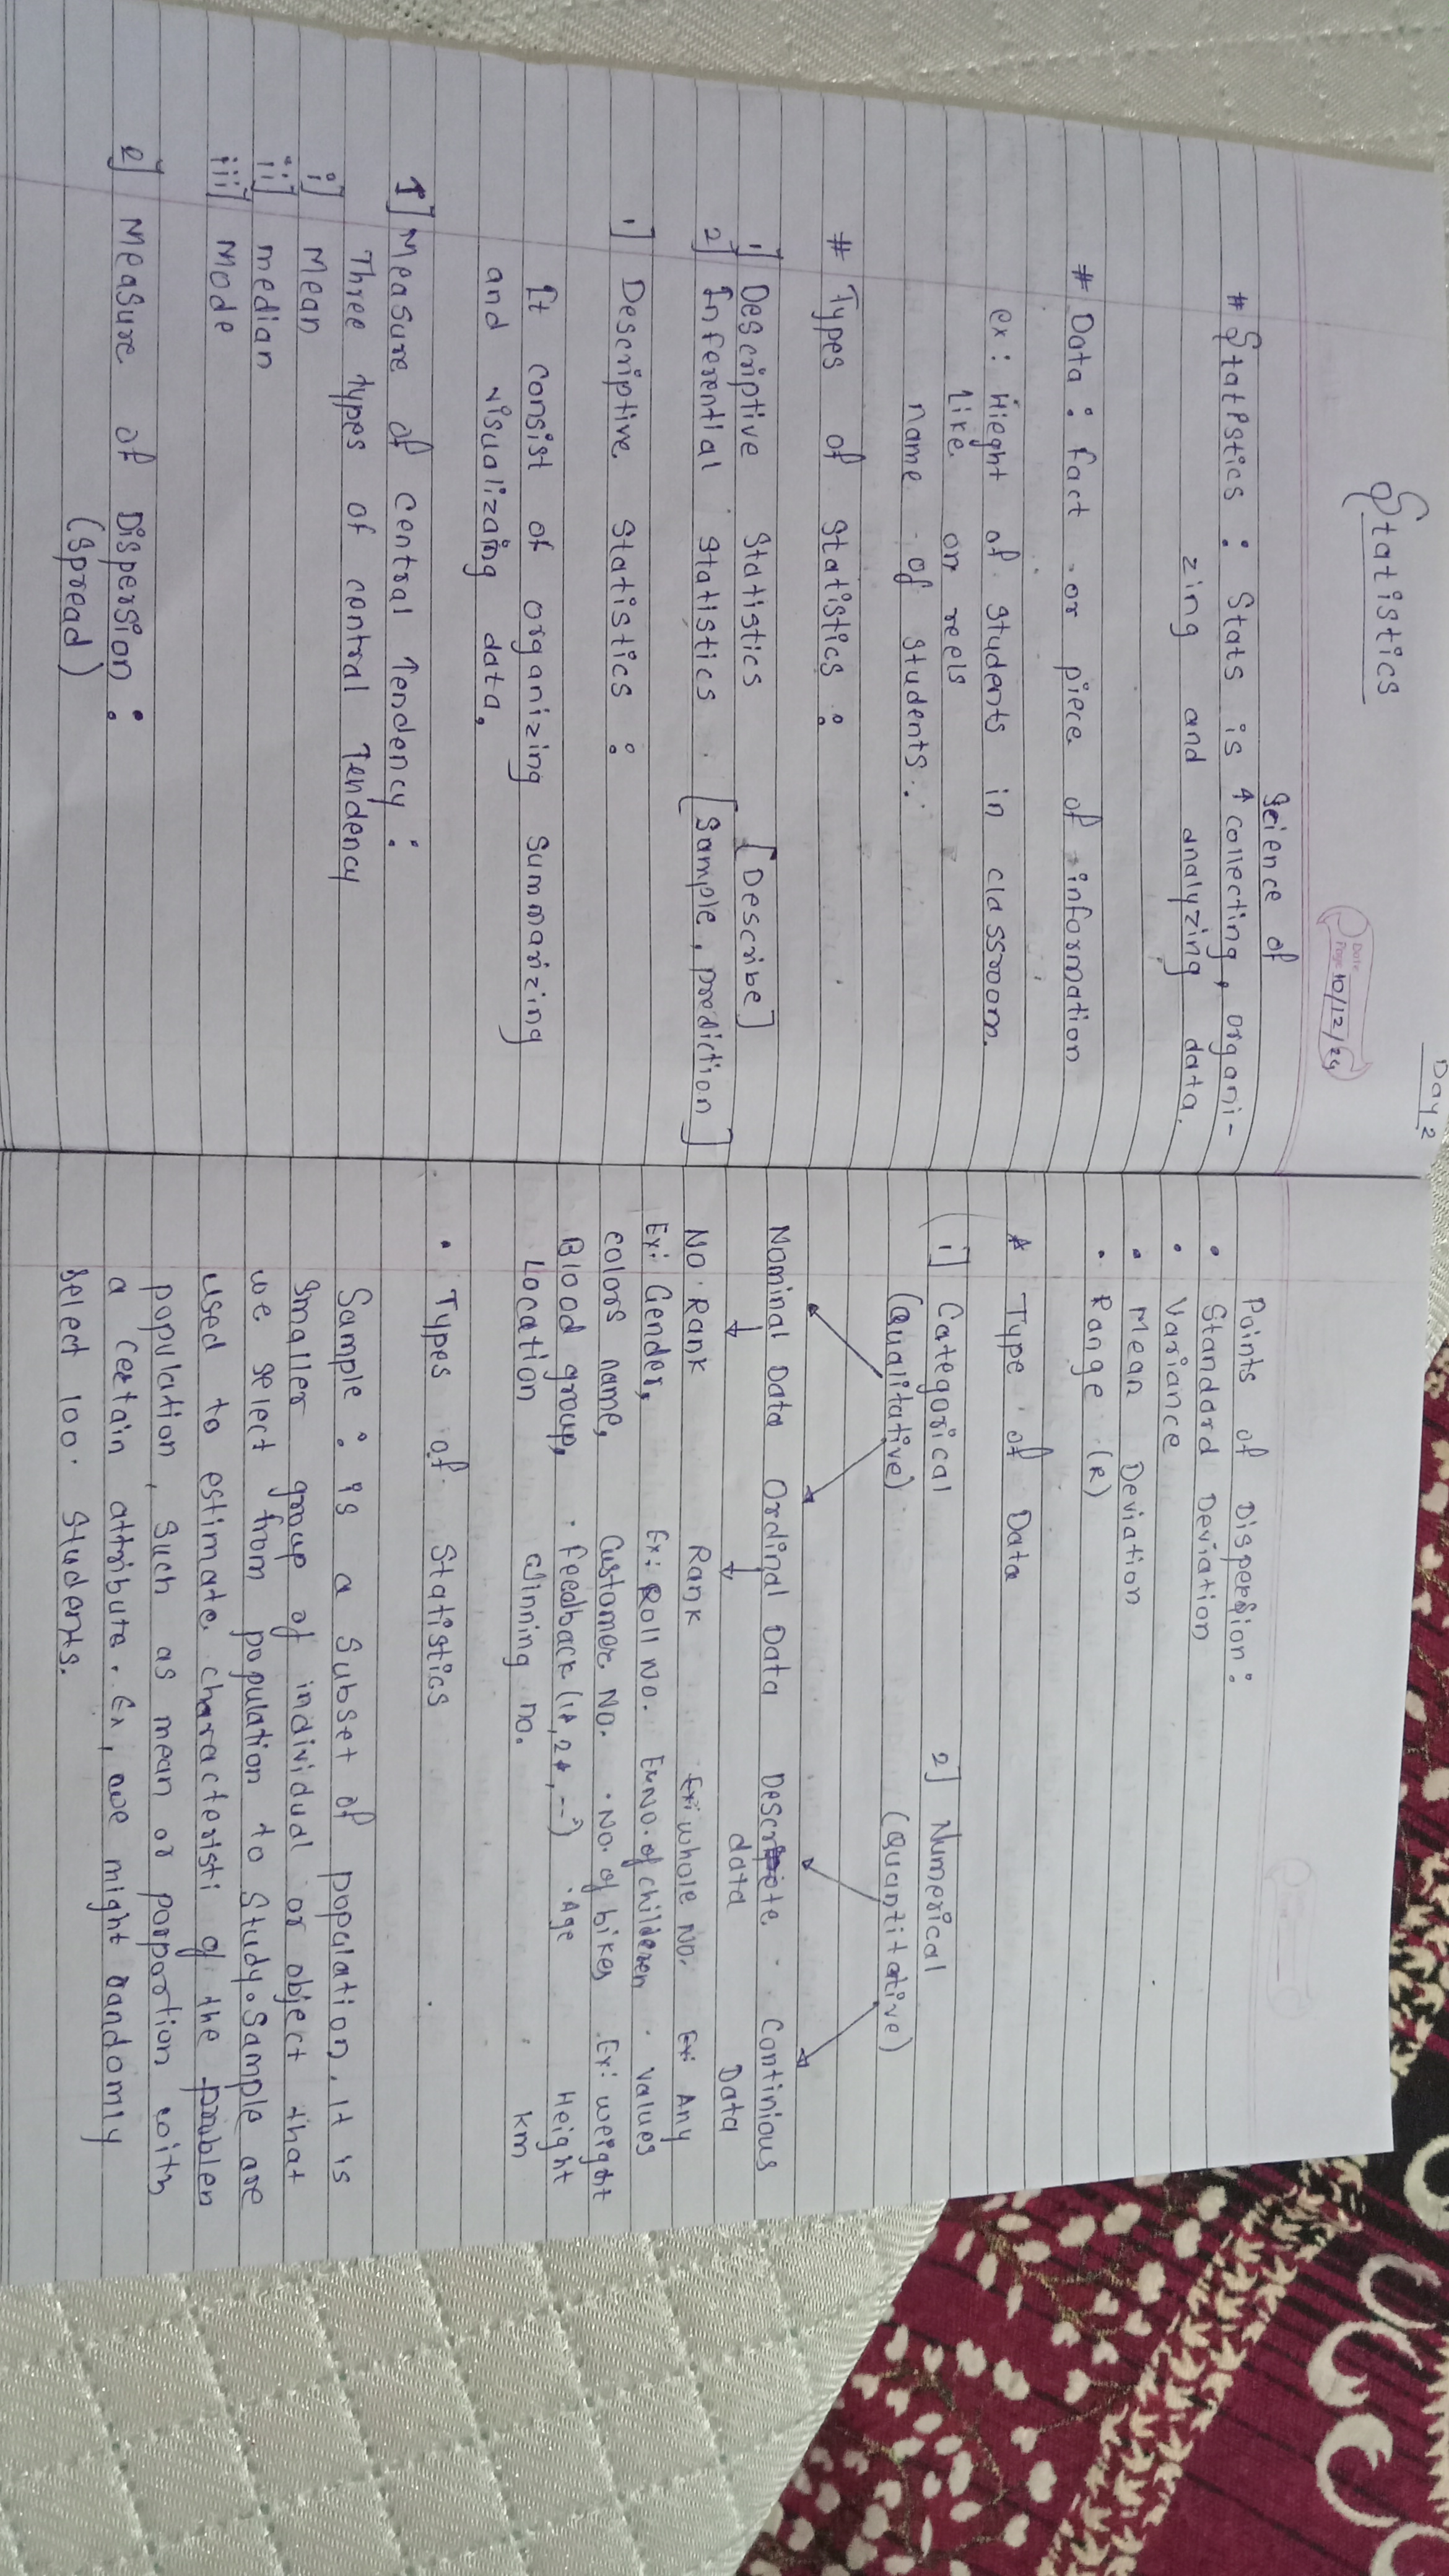 Day 2
Date
Page 10/12/24
Statistics
Science of
# Statistics : Stats is ^ collecting, organi-
zing and analyzing data.
# Data : fact or piece of information
ex : Hieght of students in classroom.
Like on reels
name of students.
# Types of statistics :
1] Descriptive Statistics [Describe]
2] Inferential statistics. [Sample, prediction]
1] Descriptive Statistics :
It consist of organizing summarizing
and visualizaing data.
1] Measure of central Tendency :
Three types of central Tendency
i] Mean
ii] median
iii] Mode
2] Measure of Dispersion :
(Spread)
Points of Dispersion :
• Standard Deviation
• Variance
• Mean Deviation
• Range (R)
* Type of Data
1] Categorical 2] Numerical
(Qualitative) (Quantitative)
Nominal Data Ordinal Data Descrete Continious
data Data
No Rank Rank Ex: whole No. Ex: Any
Ex: Gender, Ex: Roll No. Ex: No. of childeren values
colors name, Customer No. • No. of bikes Ex: weight
Blood group, • Feedback (1*, 2*, --) • Age Height
Location winning no. km
• Types of Statistics
Sample : is a subset of population, It is
smaller group of individual or object that
we select from population to study. Sample are
used to estimate characteristi of the problem
population, such as mean or porportion with
a certain attribute. Ex, we might randomly
select 100 students.